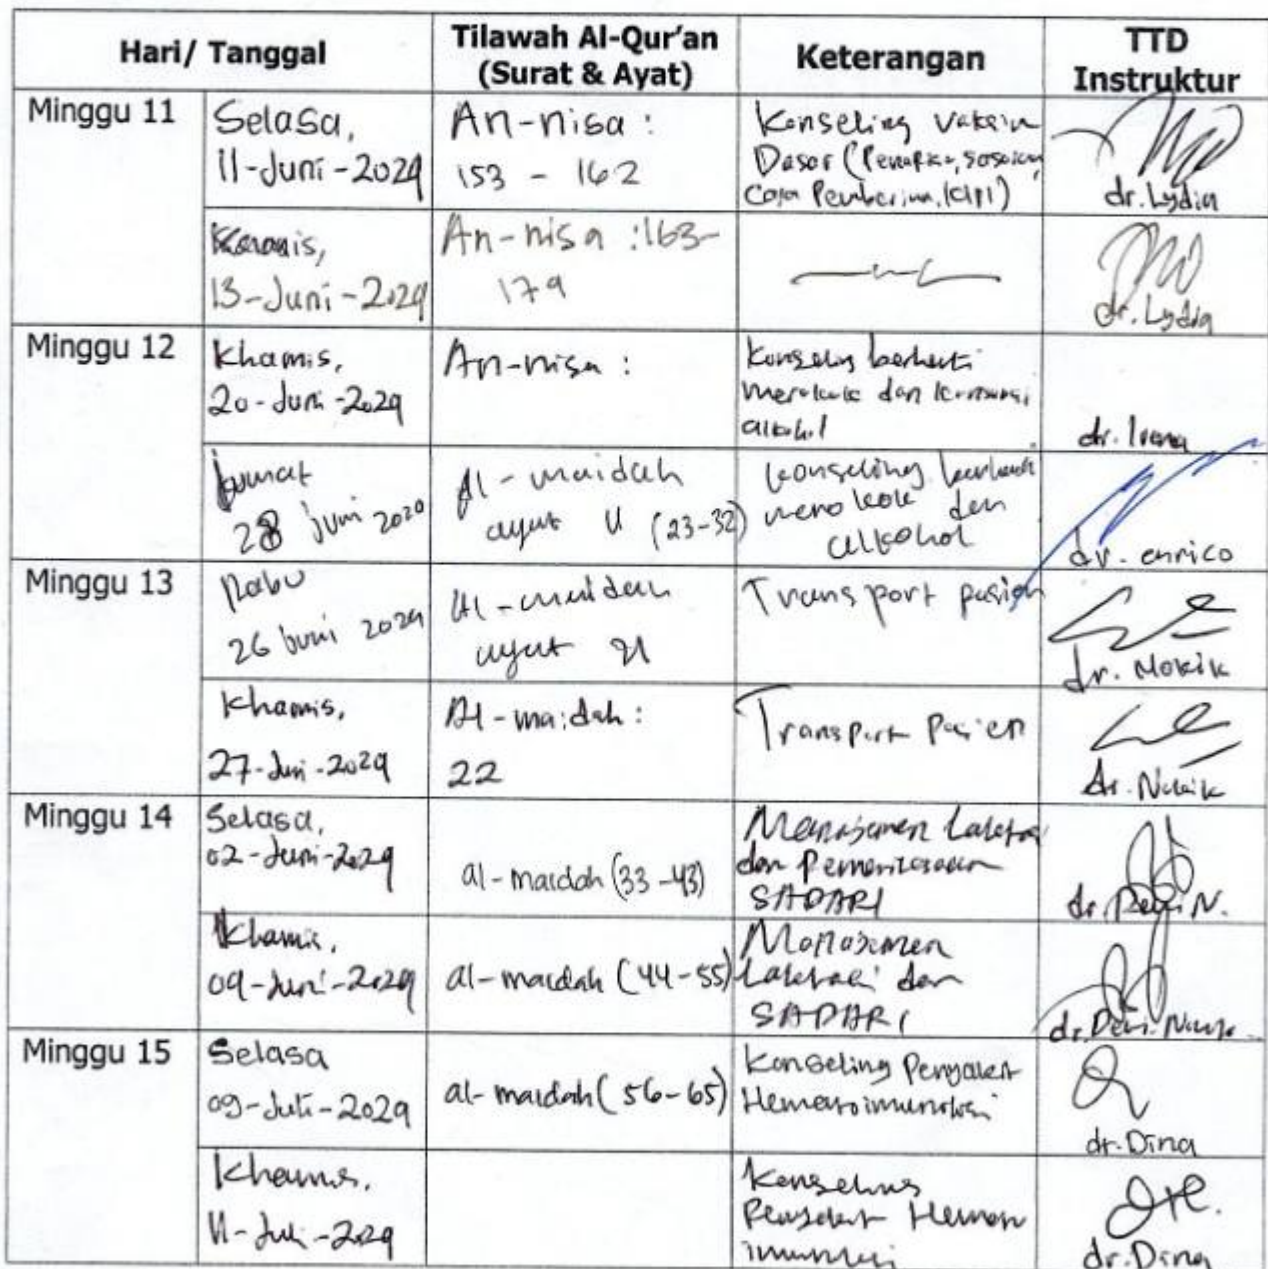 Hari/ Tanggal
Tilawah Al-Qur'an
(Surat & Ayat)
Keterangan
TTD
Instruktur
Minggu 11
Selasa,
11-Juni-2024
An-nisa :
153 - 162
Konseling vaksin
Dasar
dr. Lydia
Kamis,
13-Juni-2024
An-nisa :163-
179
dr. Lydia
Minggu 12
Khamis,
20-Juni-2024
An-nisa :
Konseling berhenti
merokok dan konsumsi
alkohol
dr. Irena
Jumat
28 juni
Al-maidah
ayat (23-32)
konseling berhenti
merokok dan
alkohol
dr. enrico
Minggu 13
Rabu
26 Juni 2024
Al-maidah
ayat 21
Transport pasien
dr. Mokik
Khamis,
27-Juni-2024
Al-maidah :
22
Transport Pasien
dr.
Minggu 14
Selasa,
02-Juni-2024
al-maidah (33-43)
Manajemen Laktasi
dan Pemeriksaan
SADARI
dr. Dewi N.
Khamis,
04-Juni-2024
al-maidah (44-55)
Manajemen
Laktasi dan
SADARI
dr. Dewi
Minggu 15
Selasa
09-Juli-2024
al-maidah (56-65)
Konseling Penyakit
Hematoimunologi
dr. Dina
Khamis,
11-Juli-2024
Konseling
Penyakit Hemato
imunologi
dr. Dina